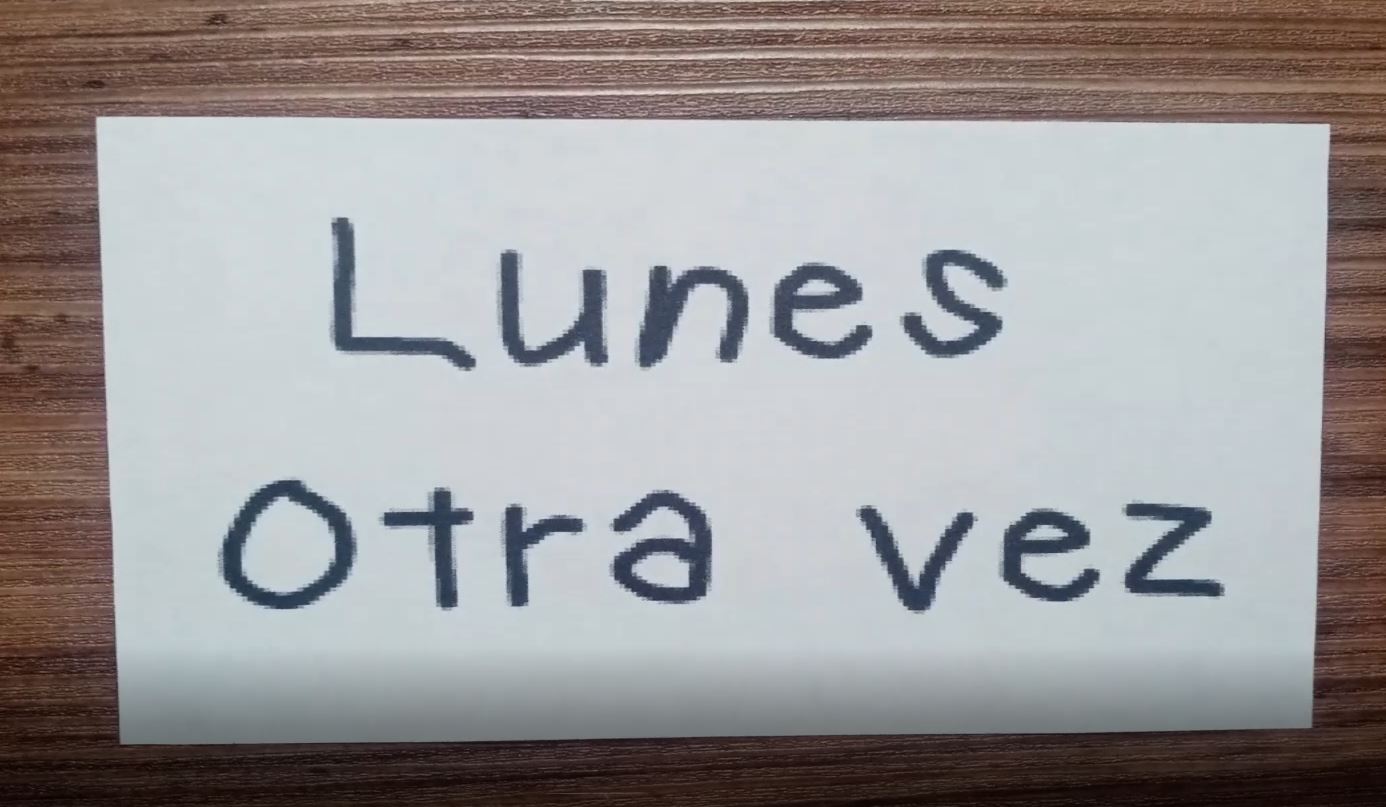 Lunes
Otra vez